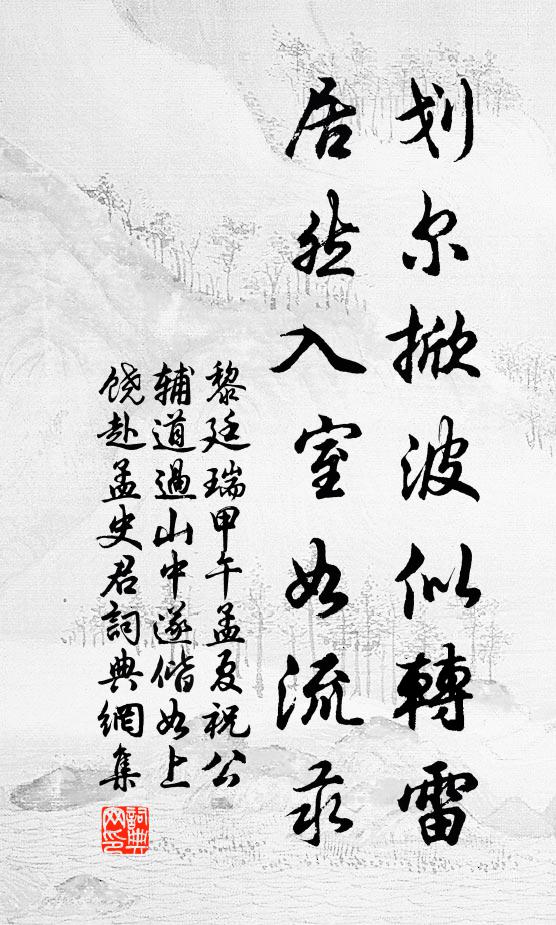 划尔掀波似轉雷
居然入室如流
黎廷瑞甲午孟夏祝公
辅道過山中遂偕如上
饶赴孟史君詞典網集
詞典
网印